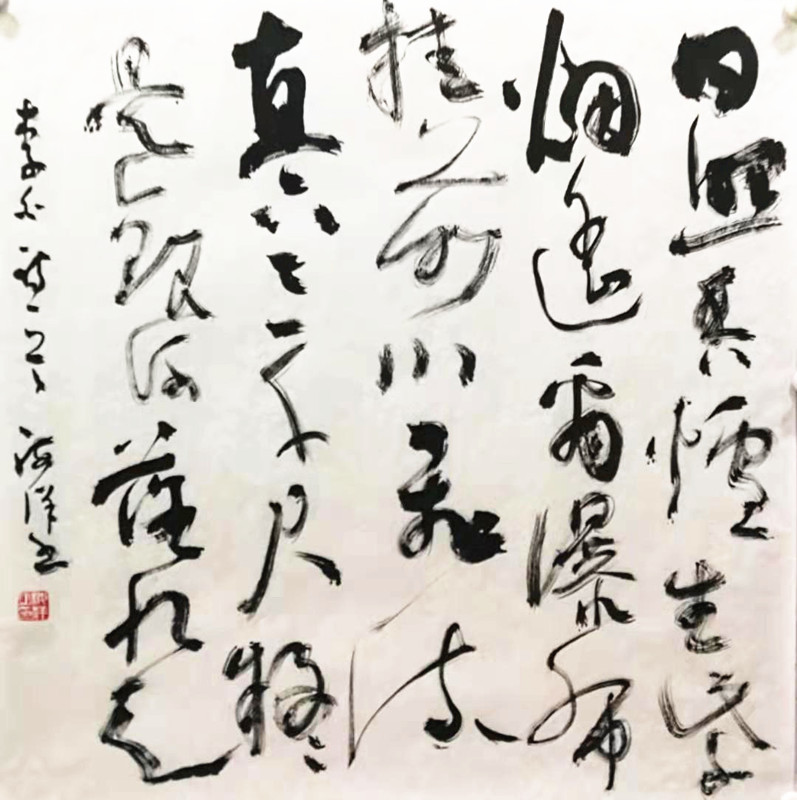 日照香爐生紫
烟遥看瀑布
挂前川飛流
直下三千尺疑
是银河落九天
李白诗一首 海洋书